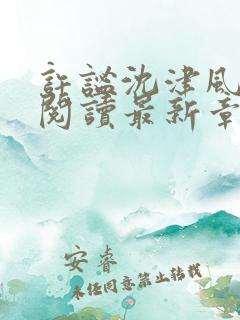 許謐沈津風
閱讀最新章
安睿
未经同意禁止转载